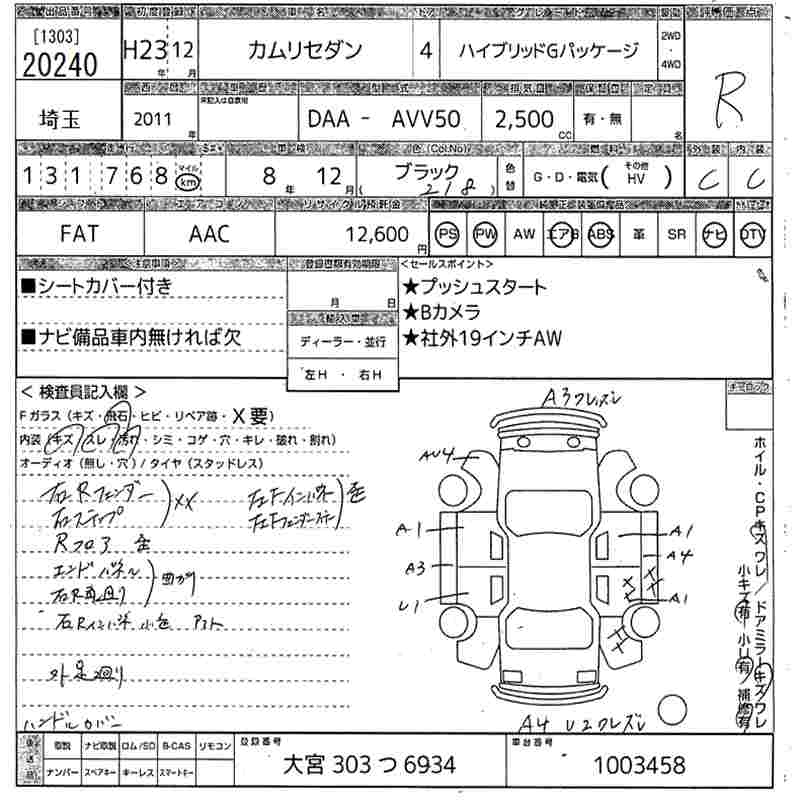 出品番号 初度登録 車名 ドア グレード 駆動 評価点
[1303]
20240
H23 年 12 月 カムリセダン 4 ハイブリッドGパッケージ 2WD・4WD R
型式 排気量
埼玉 2011 年 未記入は自家用 DAA - AVV50 2,500 CC 有・無 名
走行 車検 色(Col.No) 燃料 外装 内装
131768 マイル km 8 年 12 月 ブラック ( 218 ) 色替 G・D・電気( その他 HV ) C C
シフト エアコン リサイクル預託金
FAT AAC 12,600 円 PS PW AW エアB ABS 革 SR ナビ DTV
注意事項 登録書類有効期限 <セールスポイント>
■シートカバー付き
月 日
★プッシュスタート
★Bカメラ
★社外19インチAW
輸入車
■ナビ備品車内無ければ欠
ディーラー・並行
左H・右H
<検査員記入欄>
Fガラス(キズ・飛石・ヒビ・リペア跡・X要)
内装(キズ・スレ・汚れ・シミ・コゲ・穴・キレ・破れ・割れ)
オーディオ(無し・穴)/タイヤ(スタッドレス)
右Rフェンダー
右ステップ
XX
Rフロア
エンドパネル
曲がり
外足廻り
ハンドルカバー
A3
AU4
A1
A3
U1
A1
A4
XX
A1
A4 U2
ホイル・CPキズワレ/ドアミラーキズワレ
小キズ有 小U有 補修有
取説 ナビ取説 ロム/SD B-CAS リモコン
ナンバー スペアキー キーレス スマートキー
登録番号
大宮 303 つ 6934
車台番号
1003458